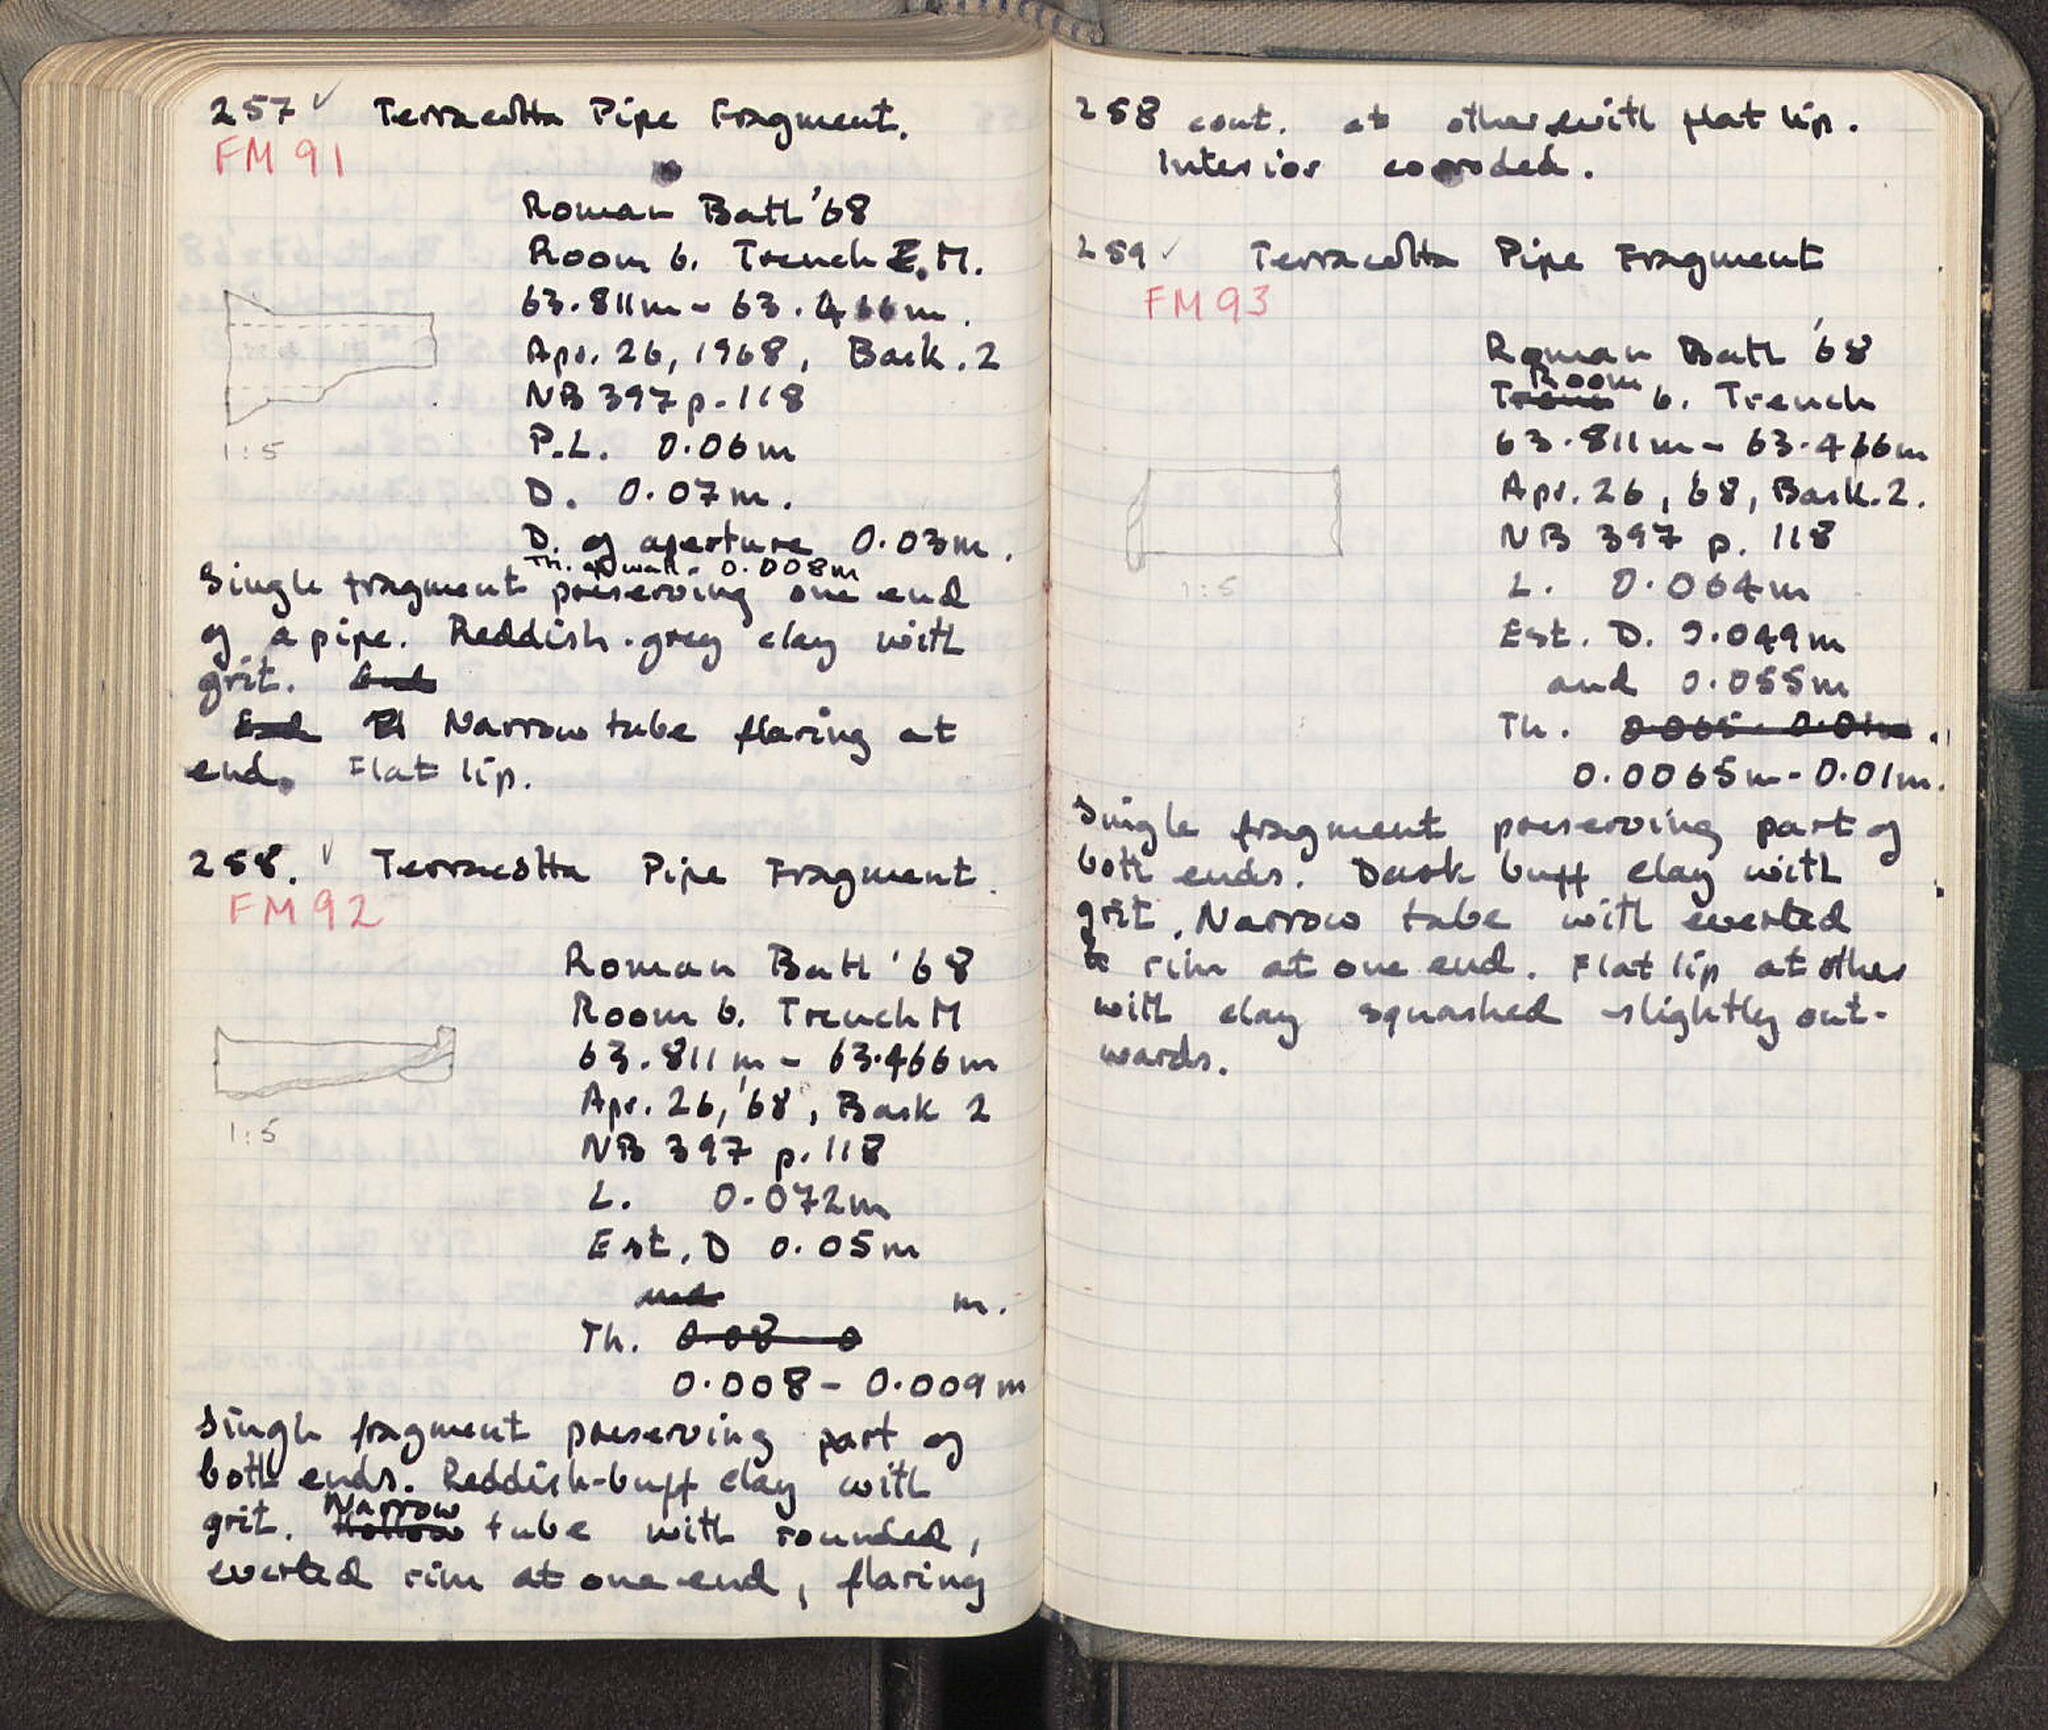 257 ✓ Terracotta Pipe Fragment.
FM 91
Roman Bath '68
Room 6. Trench E.M.
63.811m - 63.466m.
Apr. 26, 1968, Bask. 2
NB 397 p. 118
P.L. 0.06m
D. 0.07m.
D. of aperture 0.03m.
Th. of wall. 0.008m
1:5
Single fragment preserving one end
of a pipe. Reddish-grey clay with
grit. End
End Narrow tube flaring at
end. Flat lip.
258. ✓ Terracotta Pipe Fragment.
FM 92
Roman Bath '68
Room 6. Trench M
63.811m - 63.466m
Apr. 26, '68, Bask 2
NB 397 p. 118
L. 0.072m
Est. D 0.05m
and m.
Th. 0.08 - 0
0.008 - 0.009m
1:5
Single fragment preserving part of
both ends. Reddish-buff clay with
grit. Hollow Narrow tube with rounded,
everted rim at one end, flaring
258 cont. at other with flat lip.
Interior corroded.
259 ✓ Terracotta Pipe Fragment
FM 93
Roman Bath '68
Trench Room 6. Trench
63.811m - 63.466m
Apr. 26, '68, Bask. 2.
NB 397 p. 118
L. 0.064m
Est. D. 0.049m
and 0.055m
Th. 0.065 - 0.01m.
0.0065m - 0.01m.
1:5
Single fragment preserving part of
both ends. Dark buff clay with
grit. Narrow tube with everted
rim at one end. Flat lip at other
with clay squashed slightly out-
wards.